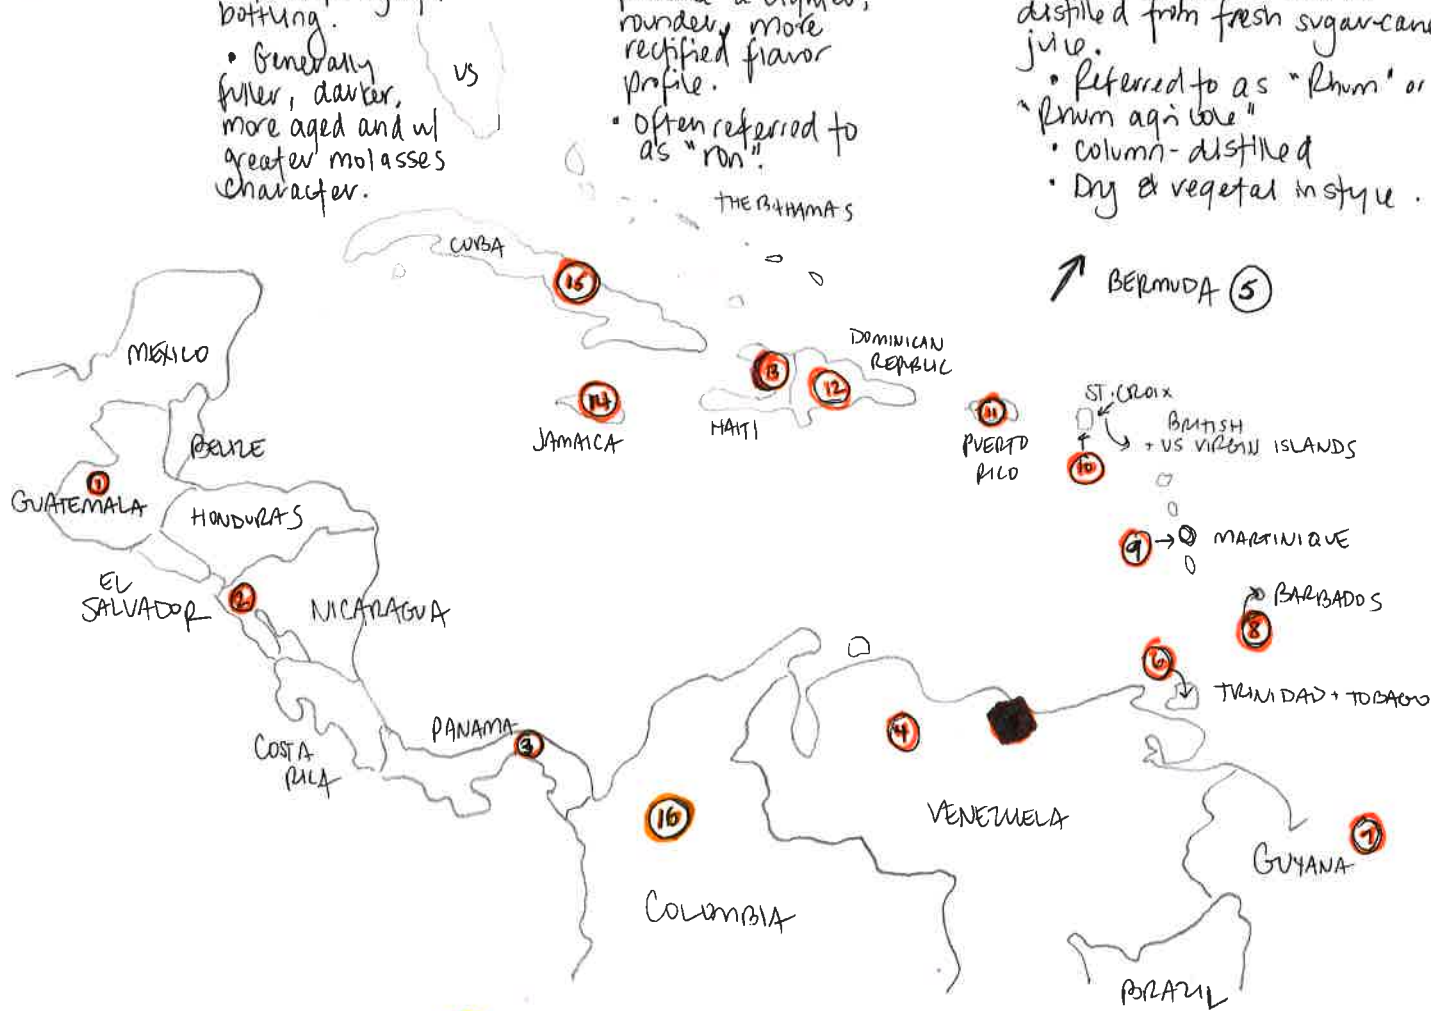 bottling.
• Generally
fuller, darker,
more aged and w/
greater molasses
character.
US
rounder, more
rectified flavor
profile.
• Often referred to
as "ron".
distilled from fresh sugar-cane
juice.
• Referred to as "Rhum" or
"Rhum agricole"
• column-distilled
• Dry & vegetal in style.
THE BAHAMAS
CUBA
15
BERMUDA 5
MEXICO
DOMINICAN
REPUBLIC
13
12
14
11
ST. CROIX
BRITISH
+ US VIRGIN ISLANDS
JAMAICA
HAITI
PUERTO
RICO
10
BELIZE
1
GUATEMALA
HONDURAS
9
MARTINIQUE
EL
SALVADOR
2
NICARAGUA
BARBADOS
8
6
TRINIDAD + TOBAGO
PANAMA
3
4
COSTA
RICA
16
VENEZUELA
7
GUYANA
COLOMBIA
BRAZIL